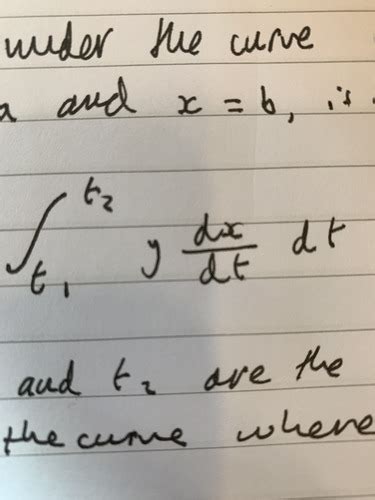 under the curve
a and x = b, is
∫_{t_1}^{t_2} y \frac{dx}{dt} dt
and t_2 are the
the curve where